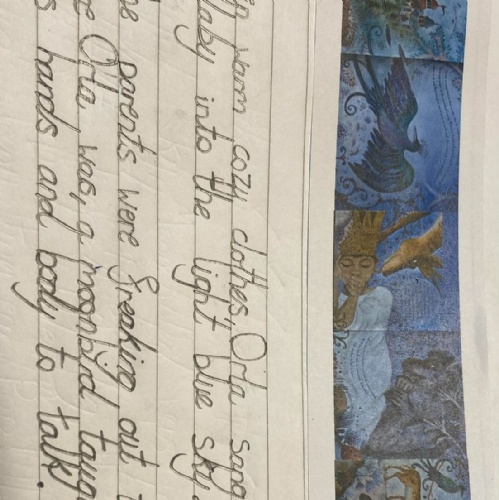 warm cozy clothes, Orla sang
llaby into the light blue sky.
parents were freaking out
Orla was, a moonbird taug
hands and body to talk.